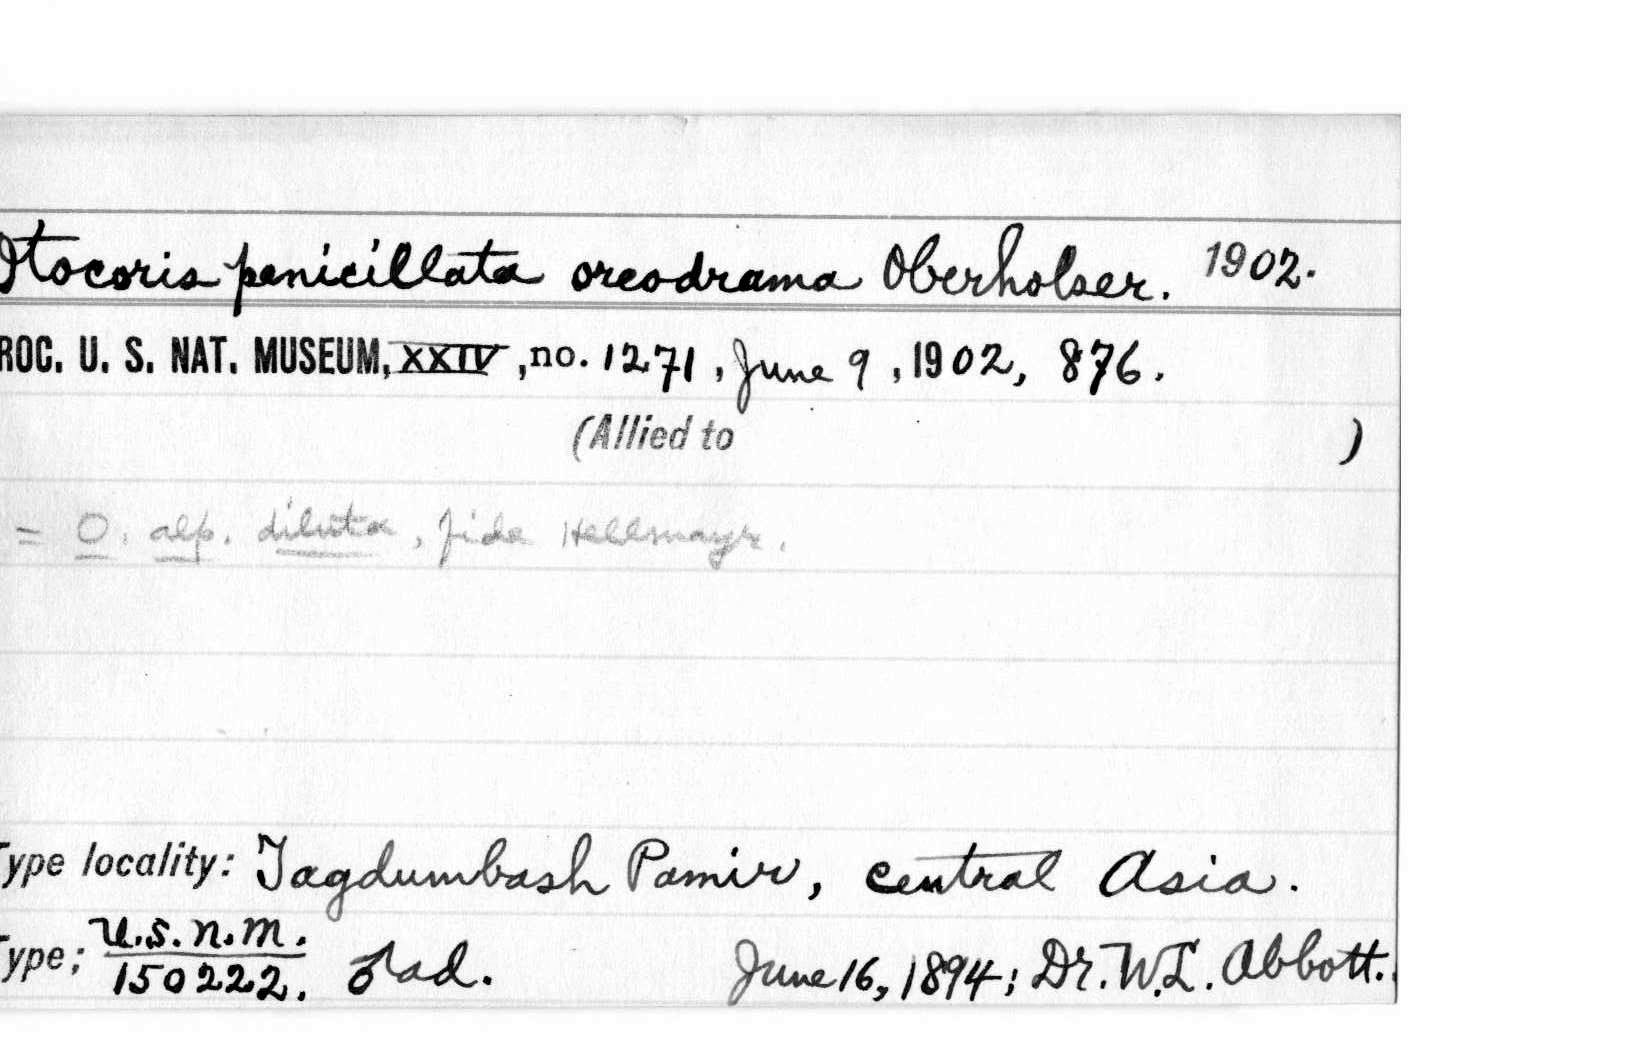 Otocoris penicillata oreodrama Oberholser. 1902.
ROC. U. S. NAT. MUSEUM, XXIV, no. 1271, June 9, 1902, 876.
(Allied to )
= O. alp. diluta, fide Hellmayr.
Type locality: Tagdumbash Pamir, central Asia.
Type; U.S.N.M. 150222. ♂ ad. June 16, 1894; Dr. W. L. Abbott.